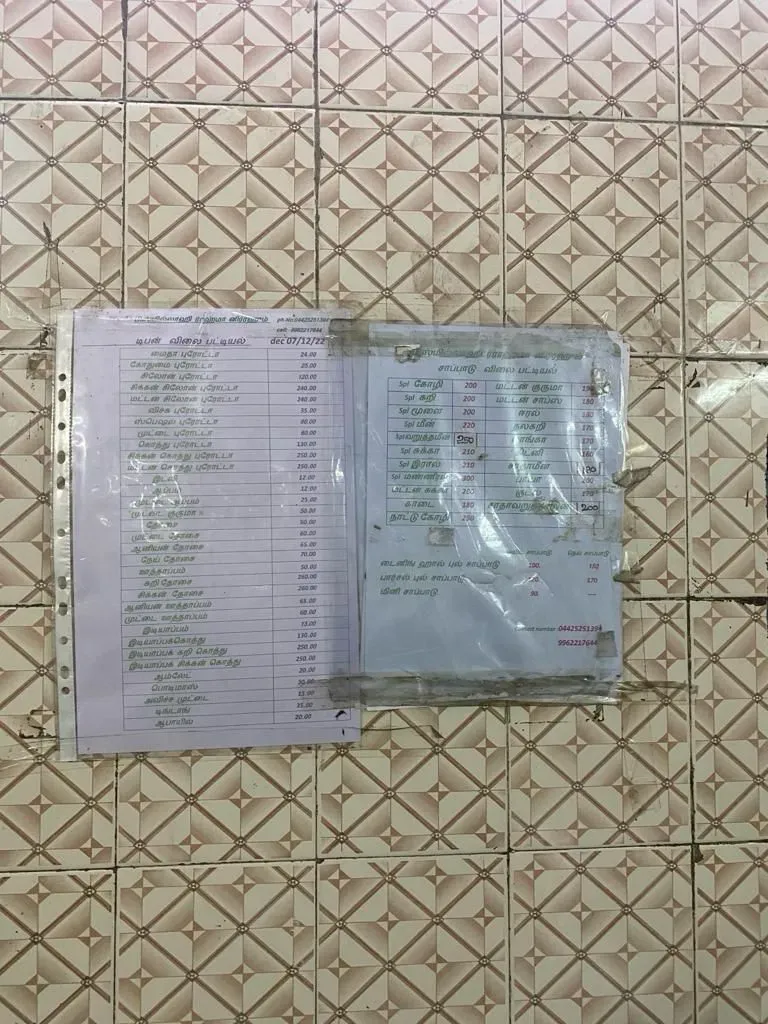 ph.No:04425251394
cell: 9962217644
டிபன் விலை பட்டியல் dec 07/12/22
மைதா புரோட்டா 24.00
கோதுமை புரோட்டா 25.00
சிலோன் புரோட்டா 120.00
சிக்கன் சிலோன் புரோட்டா 240.00
மட்டன் சிலோன் புரோட்டா 240.00
விச்சு புரோட்டா 35.00
ஸ்பெஷல் புரோட்டா 80.00
முட்டை புரோட்டா 60.00
கொத்து புரோட்டா 130.00
சிக்கன் கொத்து புரோட்டா 250.00
மட்டன் கொத்து புரோட்டா 250.00
இட்லி 12.00
ஆப்பம் 12.00
முட்டை ஆப்பம் 25.00
முட்டை குருமா 50.00
தோசை 50.00
முட்டை தோசை 60.00
ஆனியன் தோசை 65.00
நெய் தோசை 70.00
ஊத்தாப்பம் 50.00
கறி தோசை 260.00
சிக்கன் தோசை 260.00
ஆனியன் ஊத்தாப்பம் 65.00
முட்டை ஊத்தாப்பம் 60.00
இடியாப்பம் 13.00
இடியாப்பக்கொத்து 130.00
இடியாப்பக் கறி கொத்து 250.00
இடியாப்பக் சிக்கன் கொத்து 250.00
ஆம்லேட் 20.00
பொடிமாஸ் 30.00
அவிச்ச முட்டை 13.00
டிங்டாங் 35.00
ஆபாயில் 20.00
சாப்பாடு விலை பட்டியல்
Spl கோழி 200 மட்டன் குருமா 190
Spl கறி 200 மட்டன் சாப்ஸ் 180
Spl மூளை 200 ஈரல் 180
Spl மீன் 220 தலகறி 170
Spl வறுத்தமீன் 250
Spl சுக்கா 210 கிட்னி 160
Spl இரால் 210
Spl 300 பாயா 200
மட்டன் சுக்கா 200 குடல் 170
காடை 180 200
நாட்டு கோழி 250
சாப்பாடு நெய் சாப்பாடு
டைனிங் ஹால் புல் சாப்பாடு 100. 150
பார்சல் புல் சாப்பாடு 170
மினி சாப்பாடு 90. ---
Contact number :04425251394
9962217644